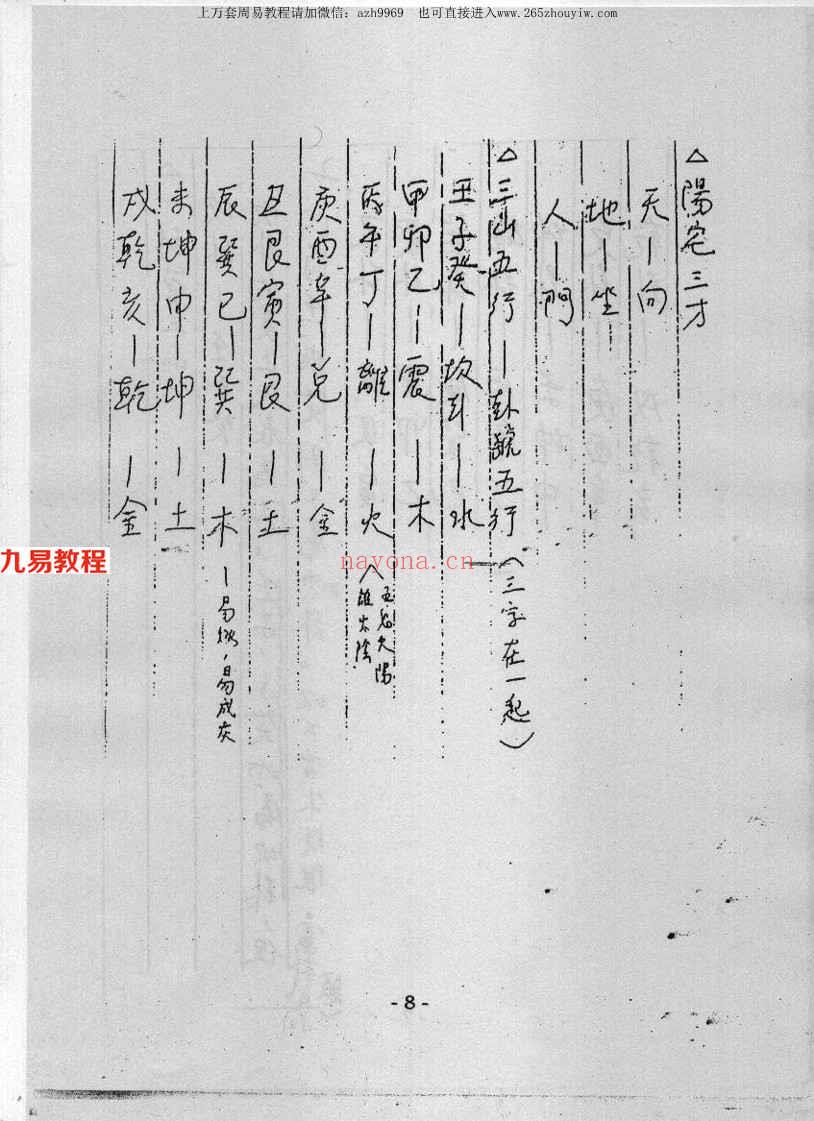 上万套周易教程请加微信：azh9969 也可直接进入www.265zhouyiw.com
△陽宅三才
天—向
地—坐
人—門
△三山五行—卦號五行（三字在一起）
壬子癸—坎卦—水
甲卯乙—震—木
丙午丁—離—火
庚酉辛—兌—金
丑艮寅—艮—土
辰巽巳—巽—木—易燃，易成灰
未坤申—坤—土
戌乾亥—乾—金
九易教程
nayona.cn
- 8 -